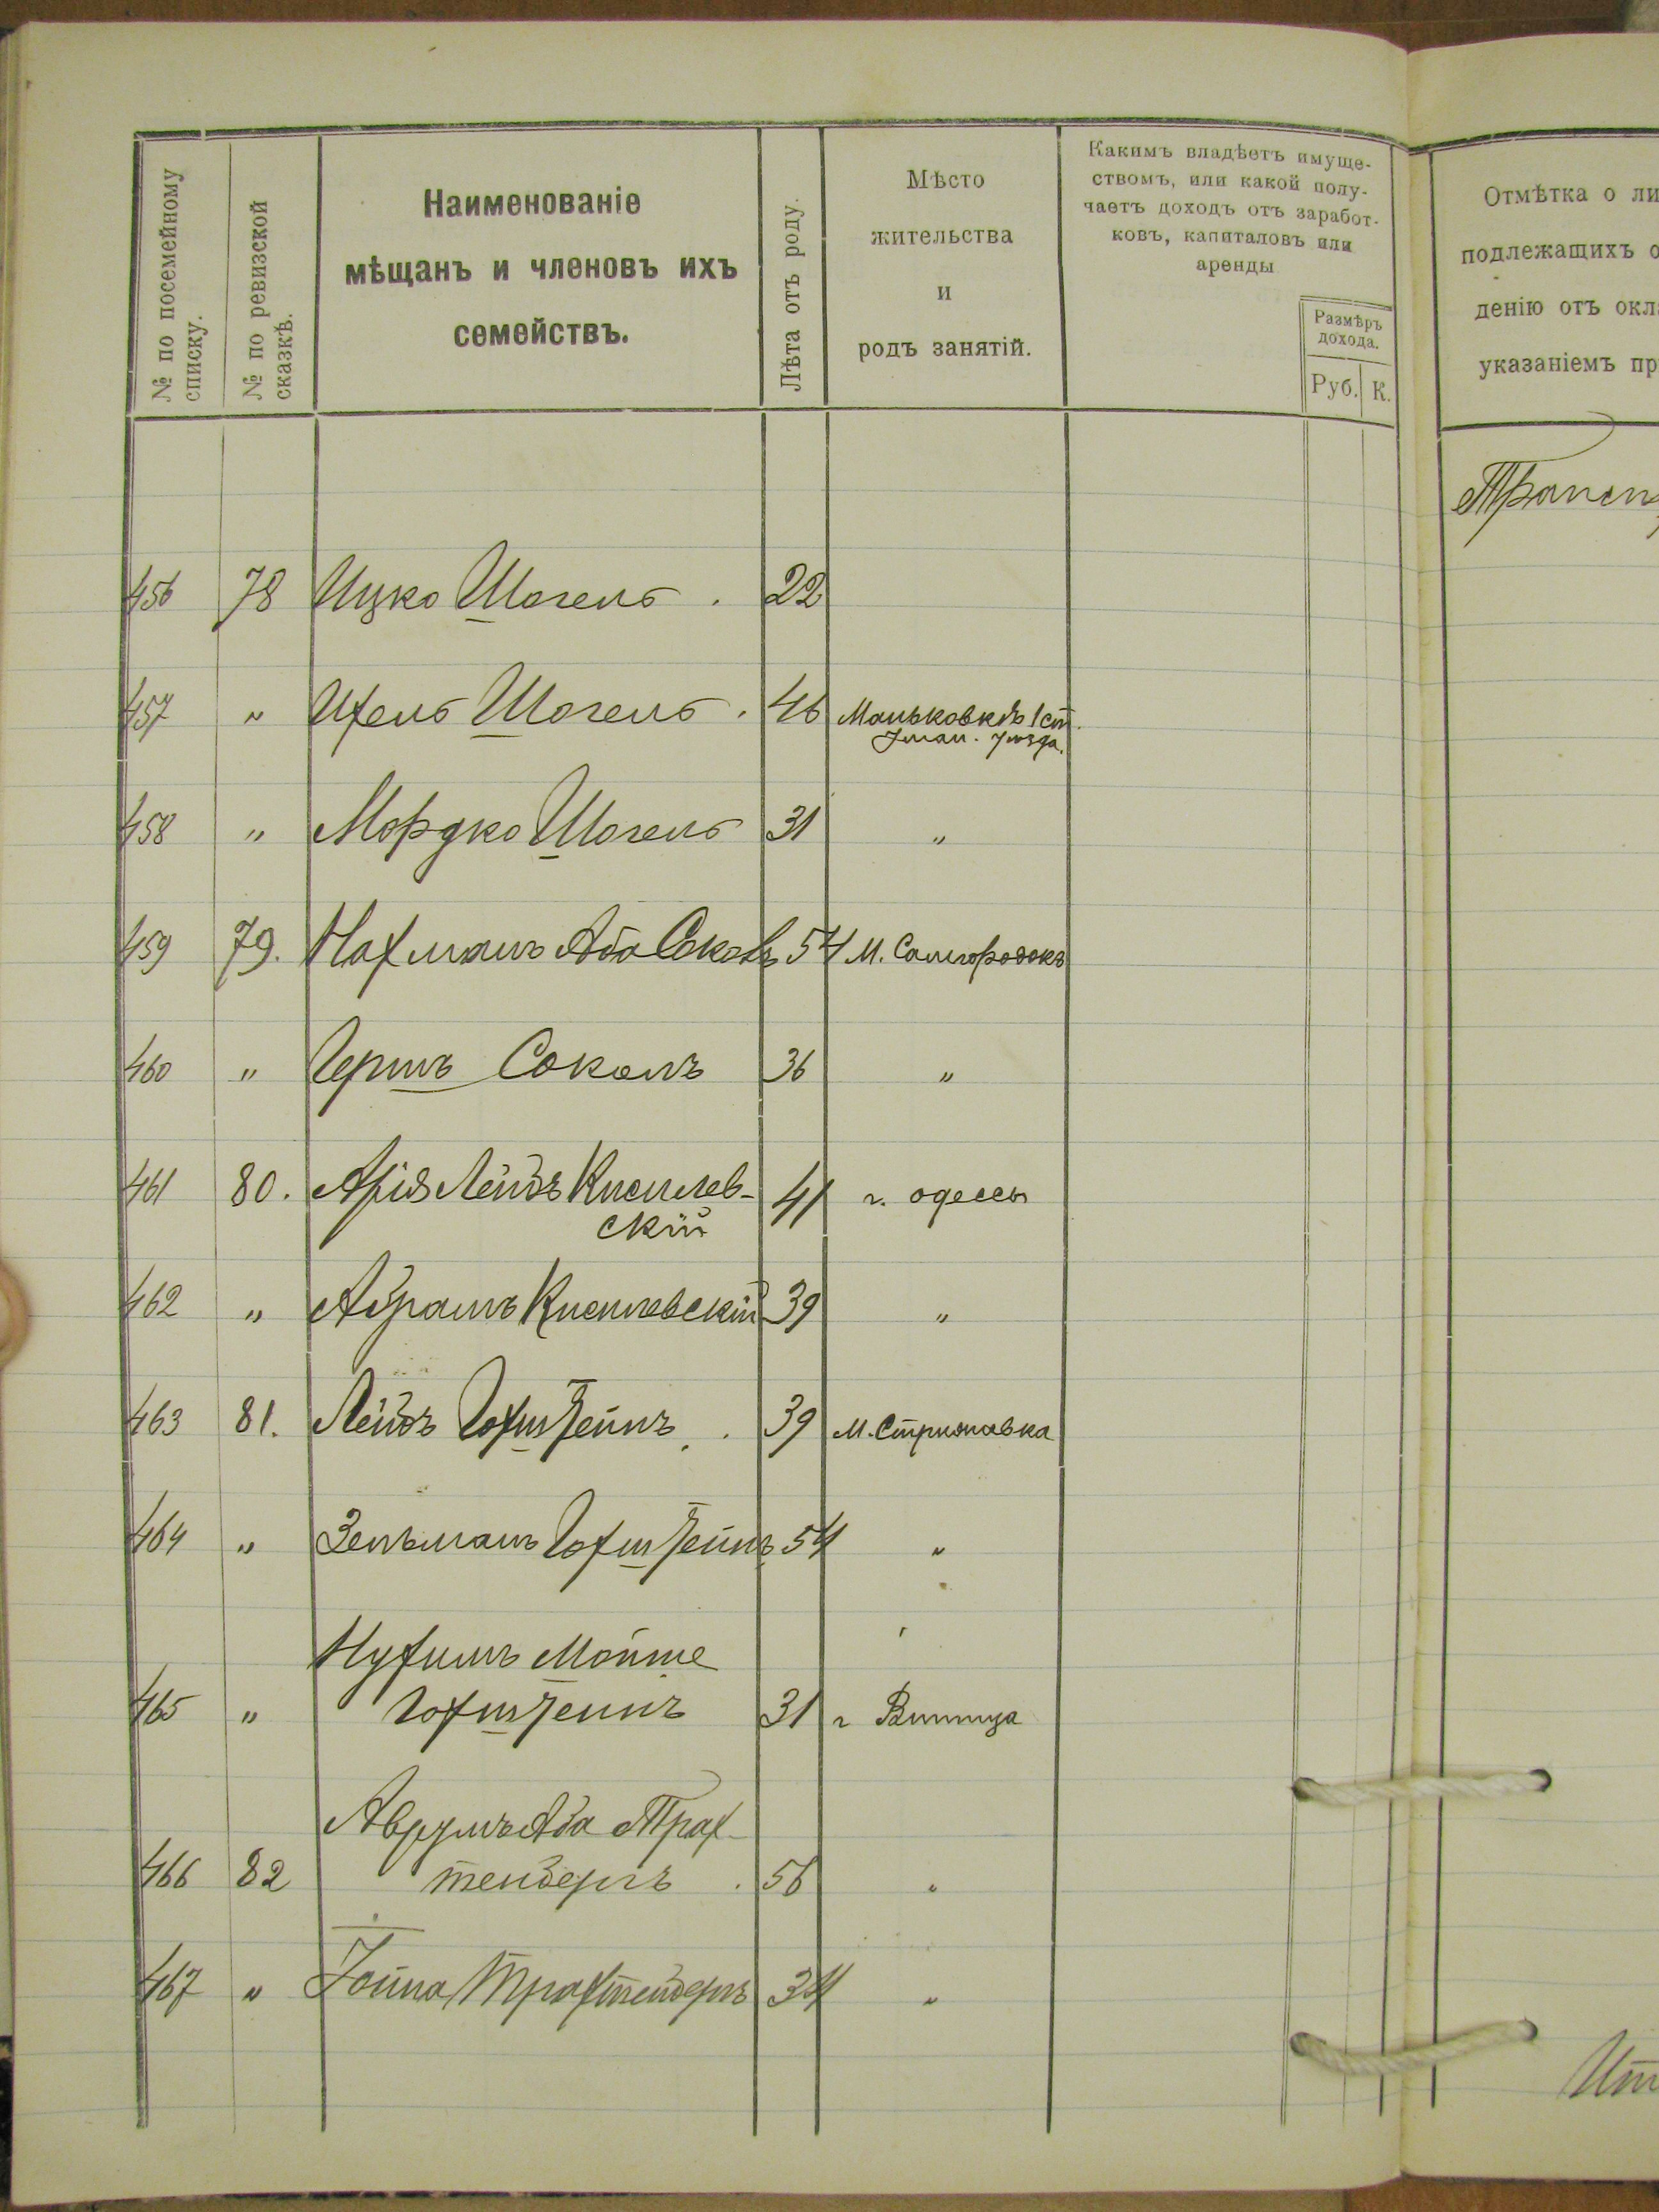 № по посемейному
списку.
№ по ревизской
сказкѣ.
Наименованіе
мѣщанъ и членовъ ихъ
семействъ.
Лѣта отъ роду.
Мѣсто
жительства
и
родъ занятій.
Какимъ владѣетъ имуще-
ствомъ, или какой полу-
чаетъ доходъ отъ заработ-
ковъ, капиталовъ или
аренды
Размѣръ
дохода.
Руб. К.
Отмѣтка о ли
подлежащихъ о
денію отъ окл
указаніемъ пр
Трансп
456 78 Ицко Шогель . 22
457 „ Ихель Шогель . 46 Маньковкѣ 1 ст.
Уман. уѣзда.
458 „ Мордко Шогель 31 „
459 79. Нахманъ Аба Соколъ 54 М. Самгородокъ
460 „ Гершъ Соколъ 36 „
461 80. Арія Лейбъ Кисилев- 41 г. Одессы
скій
462 „ Абрамъ Кисилевскій 39 „
463 81. Лейбъ Гохштейнъ . 39 М. Стрижавка
464 „ Зельманъ Гохштейнъ 54 „
Нухимъ Мойше
465 „ Гохштейнъ 31 г Винница
Аврумъ Аба Трах-
466 82 тенбергъ . 56 „
467 „ Іойна Трахтенбергъ 34 „
Ит